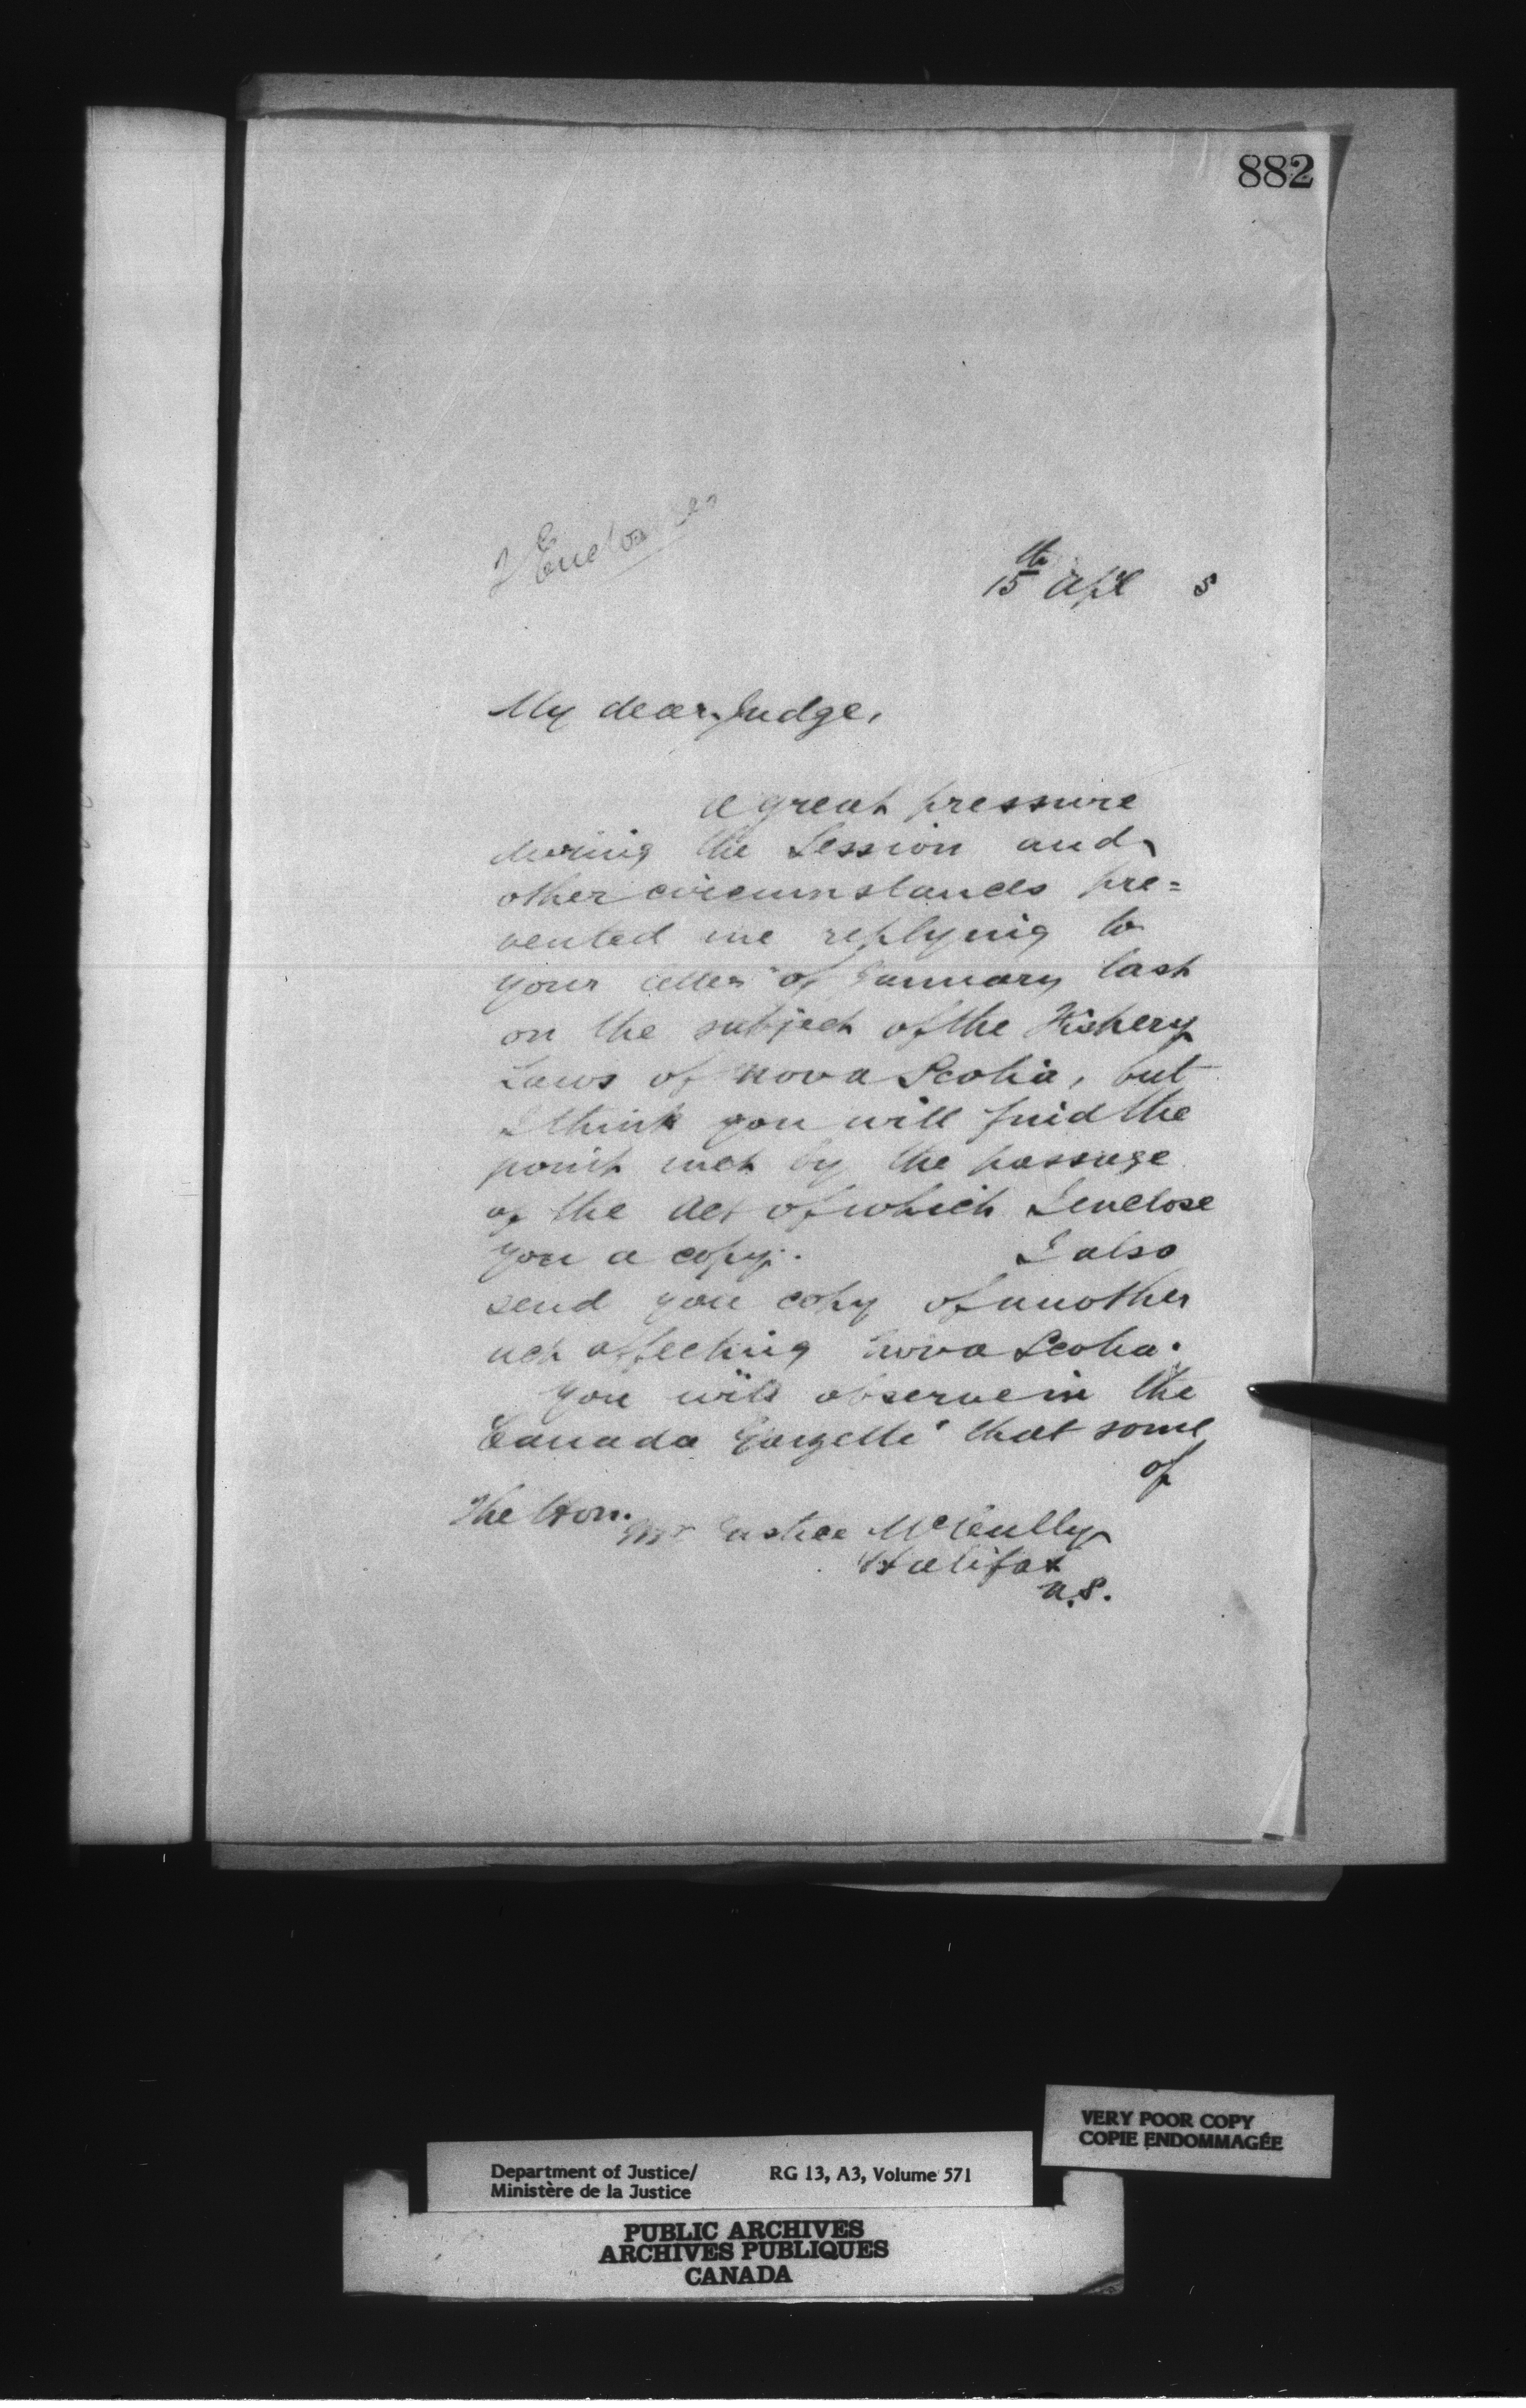 882
2 Enclosures
15th Apl 5
My dear Judge,
A great pressure
during the Session and
other circumstances pre=
vented me replying to
your letter of January last
on the subject of the Fishery
Laws of Nova Scotia, but
I think you will find the
point met by the passage
of the Act of which I enclose
you a copy. I also
send you copy of another
act affecting Nova Scotia.
You will observe in the
Canada Gazette that some
of
The Hon.
Mr Justice McCully
Halifax
N.S.
VERY POOR COPY
COPIE ENDOMMAGÉE
Department of Justice/ RG 13, A3, Volume 571
Ministère de la Justice
PUBLIC ARCHIVES
ARCHIVES PUBLIQUES
CANADA